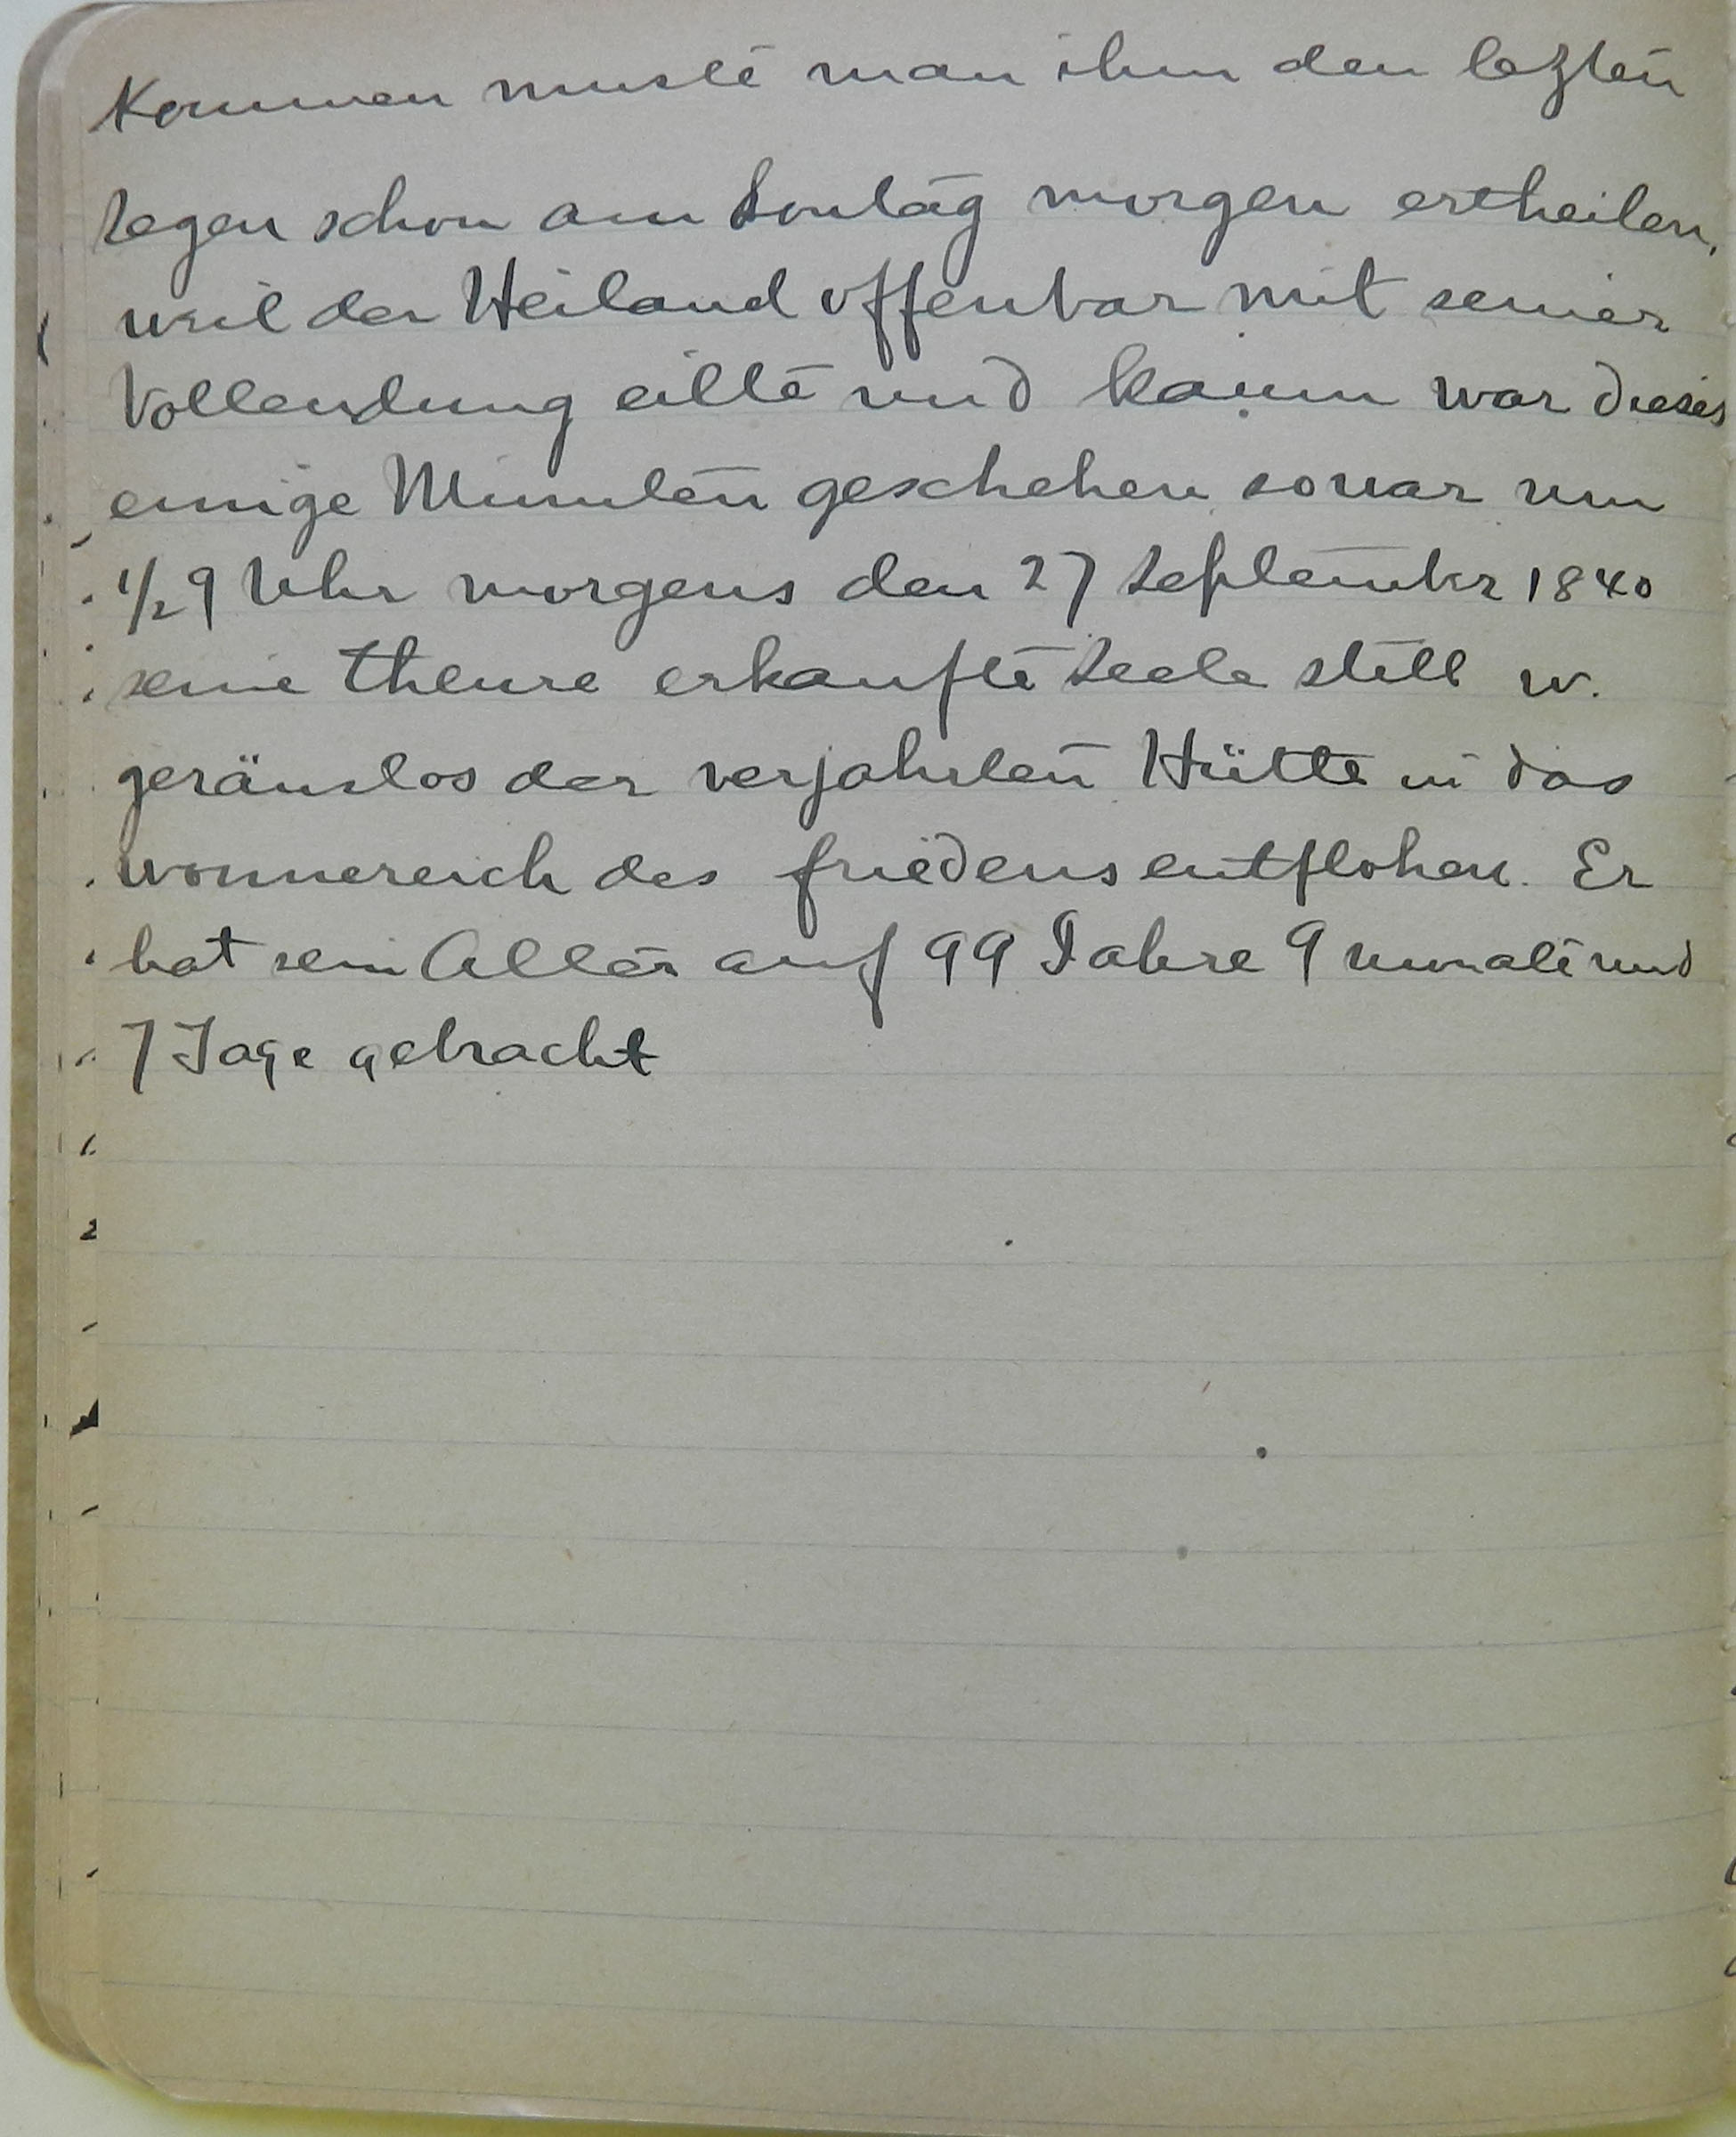 Kommen muste man ihm den lezten
Segen schon am Sontag morgen ertheilen,
weil der Heiland offenbar mit seiner
Vollendung eilte und kaum war dieses
einige Minuten geschehen so war um
1/2 9 Uhr morgens den 27 September 1840
seine theure erkaufte Seele still u.
geräuslos der verjahrten Hütte in das
wonnereich des friedens entflohen. Er
hat sein Alter auf 99 Jahre 9 monate und
7 Tage gebracht